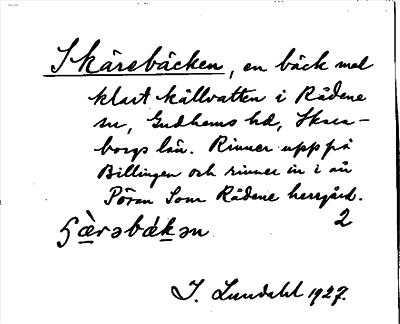 Skäresbäcken, en bäck med
klart källvatten i Rådene
sn, Gudhems hd, Skara-
borgs län. Rinner upp på
Billingen och rinner in i ån
Pösan som Rådene herrgård.
ʂæ̀rəbækən 2
J. Lundahl 1927.